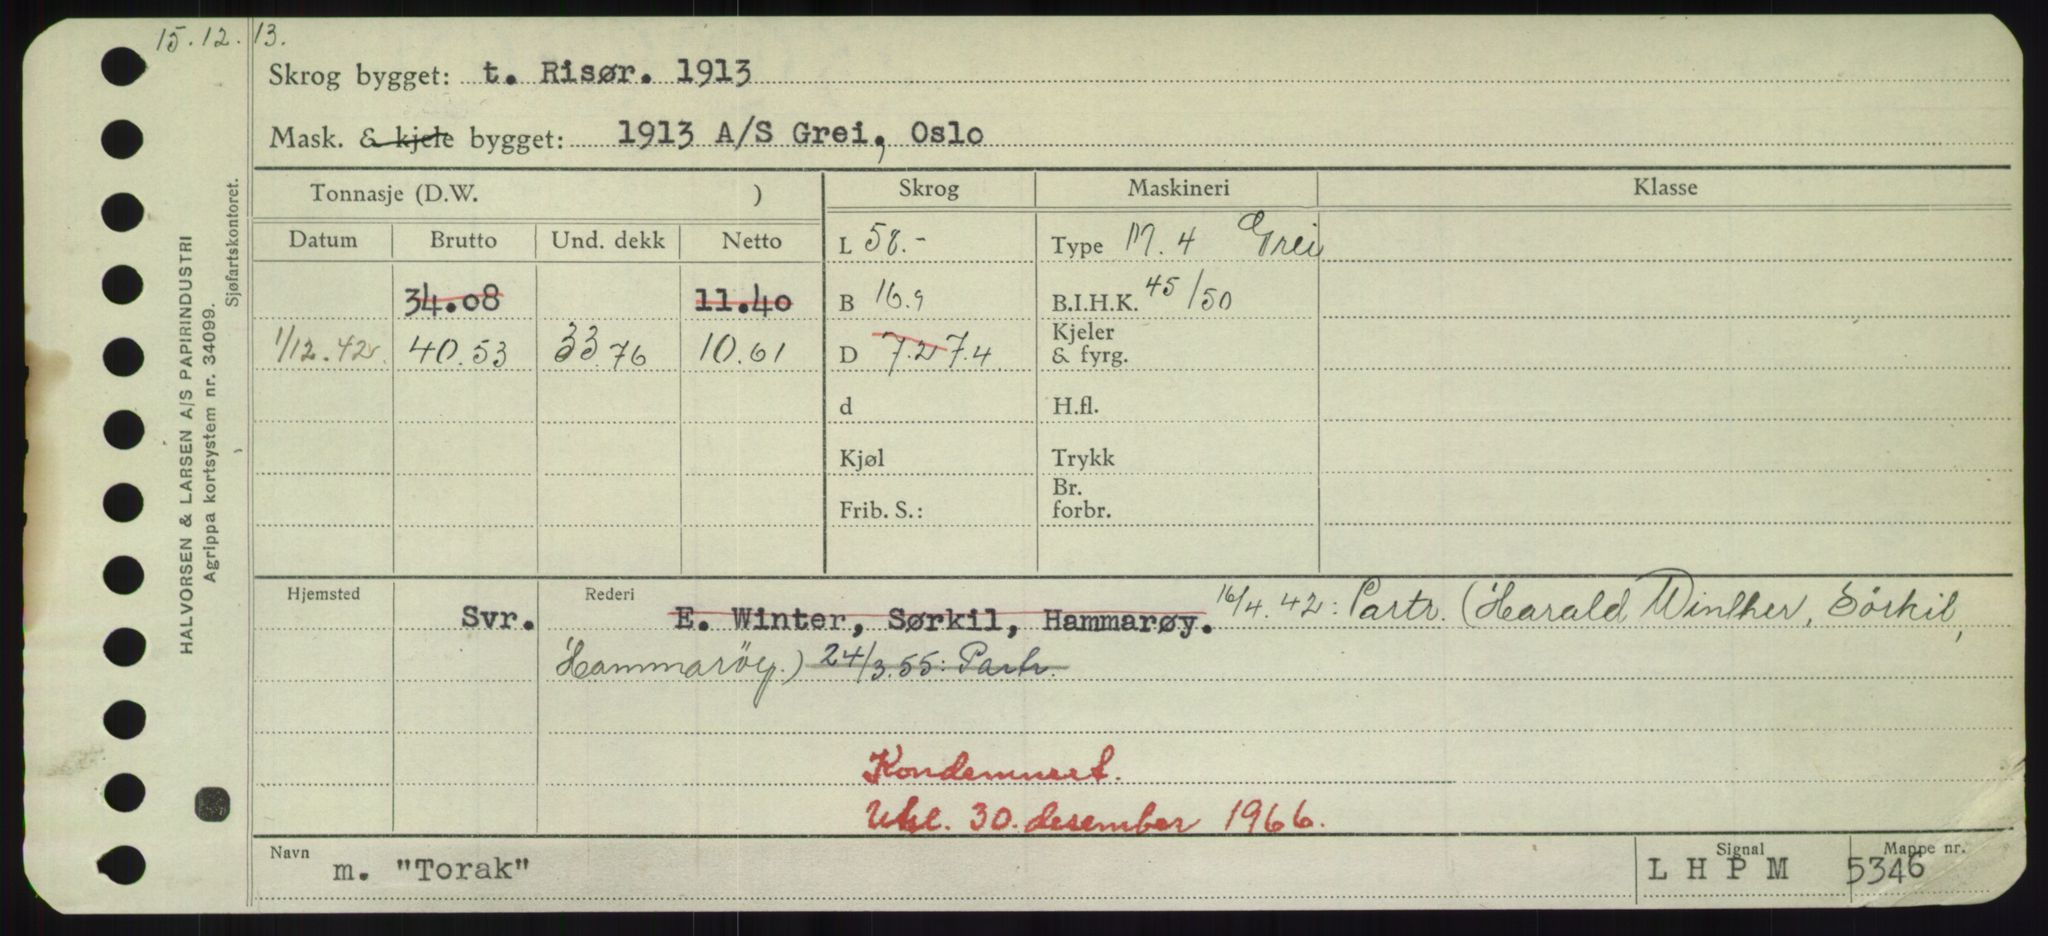 15.12.13.
Skrog bygget: t. Risør. 1913
Mask. & kjele bygget: 1913 A/S Grei, Oslo
Tonnasje (D.W. ) Skrog Maskineri Klasse
Datum Brutto Und. dekk Netto L 58.- Type M. 4 Grei
34.08 11.40 B 16.9 B.I.H.K. 45/50
1/12.42 40.53 33.76 10.61 D 7.2 7.4 Kjeler & fyrg.
d H.fl.
Kjøl Trykk
Frib. S.: Br. forbr.
Hjemsted Svr. Rederi E. Winter, Sørkil, Hammarøy. 16/4.42: Partr. (Harald Winther, Sörkil,
Hammaröy.) 24/3.55: Partr.
Kondemnert.
Utsl. 30. desember 1966.
Navn m. "Torak" Signal L H P M Mappe nr. 5346
HALVORSEN & LARSEN A/S PAPIRINDUSTRI
Agrippa kortsystem nr. 34099.
Sjøfartskontoret.